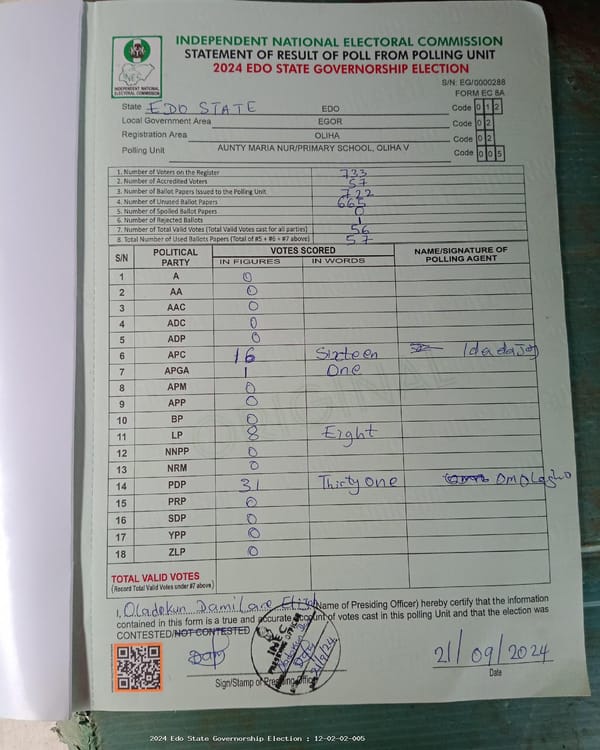 INDEPENDENT NATIONAL ELECTORAL COMMISSION
STATEMENT OF RESULT OF POLL FROM POLLING UNIT
2024 EDO STATE GOVERNORSHIP ELECTION
INEC
INDEPENDENT NATIONAL ELECTORAL COMMISSION
S/N: EG/0000288
FORM EC 8A
State EDO STATE EDO Code 0 1 2
Local Government Area EGOR Code 0 2
Registration Area OLIHA Code 0 2
Polling Unit AUNTY MARIA NUR/PRIMARY SCHOOL, OLIHA V Code 0 0 5
1. Number of Voters on the Register 733
2. Number of Accredited Voters 57
3. Number of Ballot Papers Issued to the Polling Unit 722
4. Number of Unused Ballot Papers 665
5. Number of Spoiled Ballot Papers 0
6. Number of Rejected Ballots 1
7. Number of Total Valid Votes (Total Valid Votes cast for all parties) 56
8. Total Number of Used Ballots Papers (Total of #5 + #6 + #7 above) 57
S/N POLITICAL PARTY VOTES SCORED NAME/SIGNATURE OF POLLING AGENT
IN FIGURES IN WORDS
1 A 0
2 AA 0
3 AAC 0
4 ADC 0
5 ADP 0
6 APC 16 Sixteen
7 APGA 1 One
8 APM 0
9 APP 0
10 BP 0
11 LP 8 Eight
12 NNPP 0
13 NRM 0
14 PDP 31 Thirty One
15 PRP 0
16 SDP 0
17 YPP 0
18 ZLP 0
ORIGINAL
TOTAL VALID VOTES
(Record Total Valid Votes under #7 above)
I, Oladokun Damilare (Name of Presiding Officer) hereby certify that the information
contained in this form is a true and accurate account of votes cast in this polling Unit and that the election was
CONTESTED/NOT CONTESTED
INEC
PRESIDING OFFICER
21/9/24
21/09/2024
Sign/Stamp of Presiding Officer
Date
2024 Edo State Governorship Election : 12-02-02-005